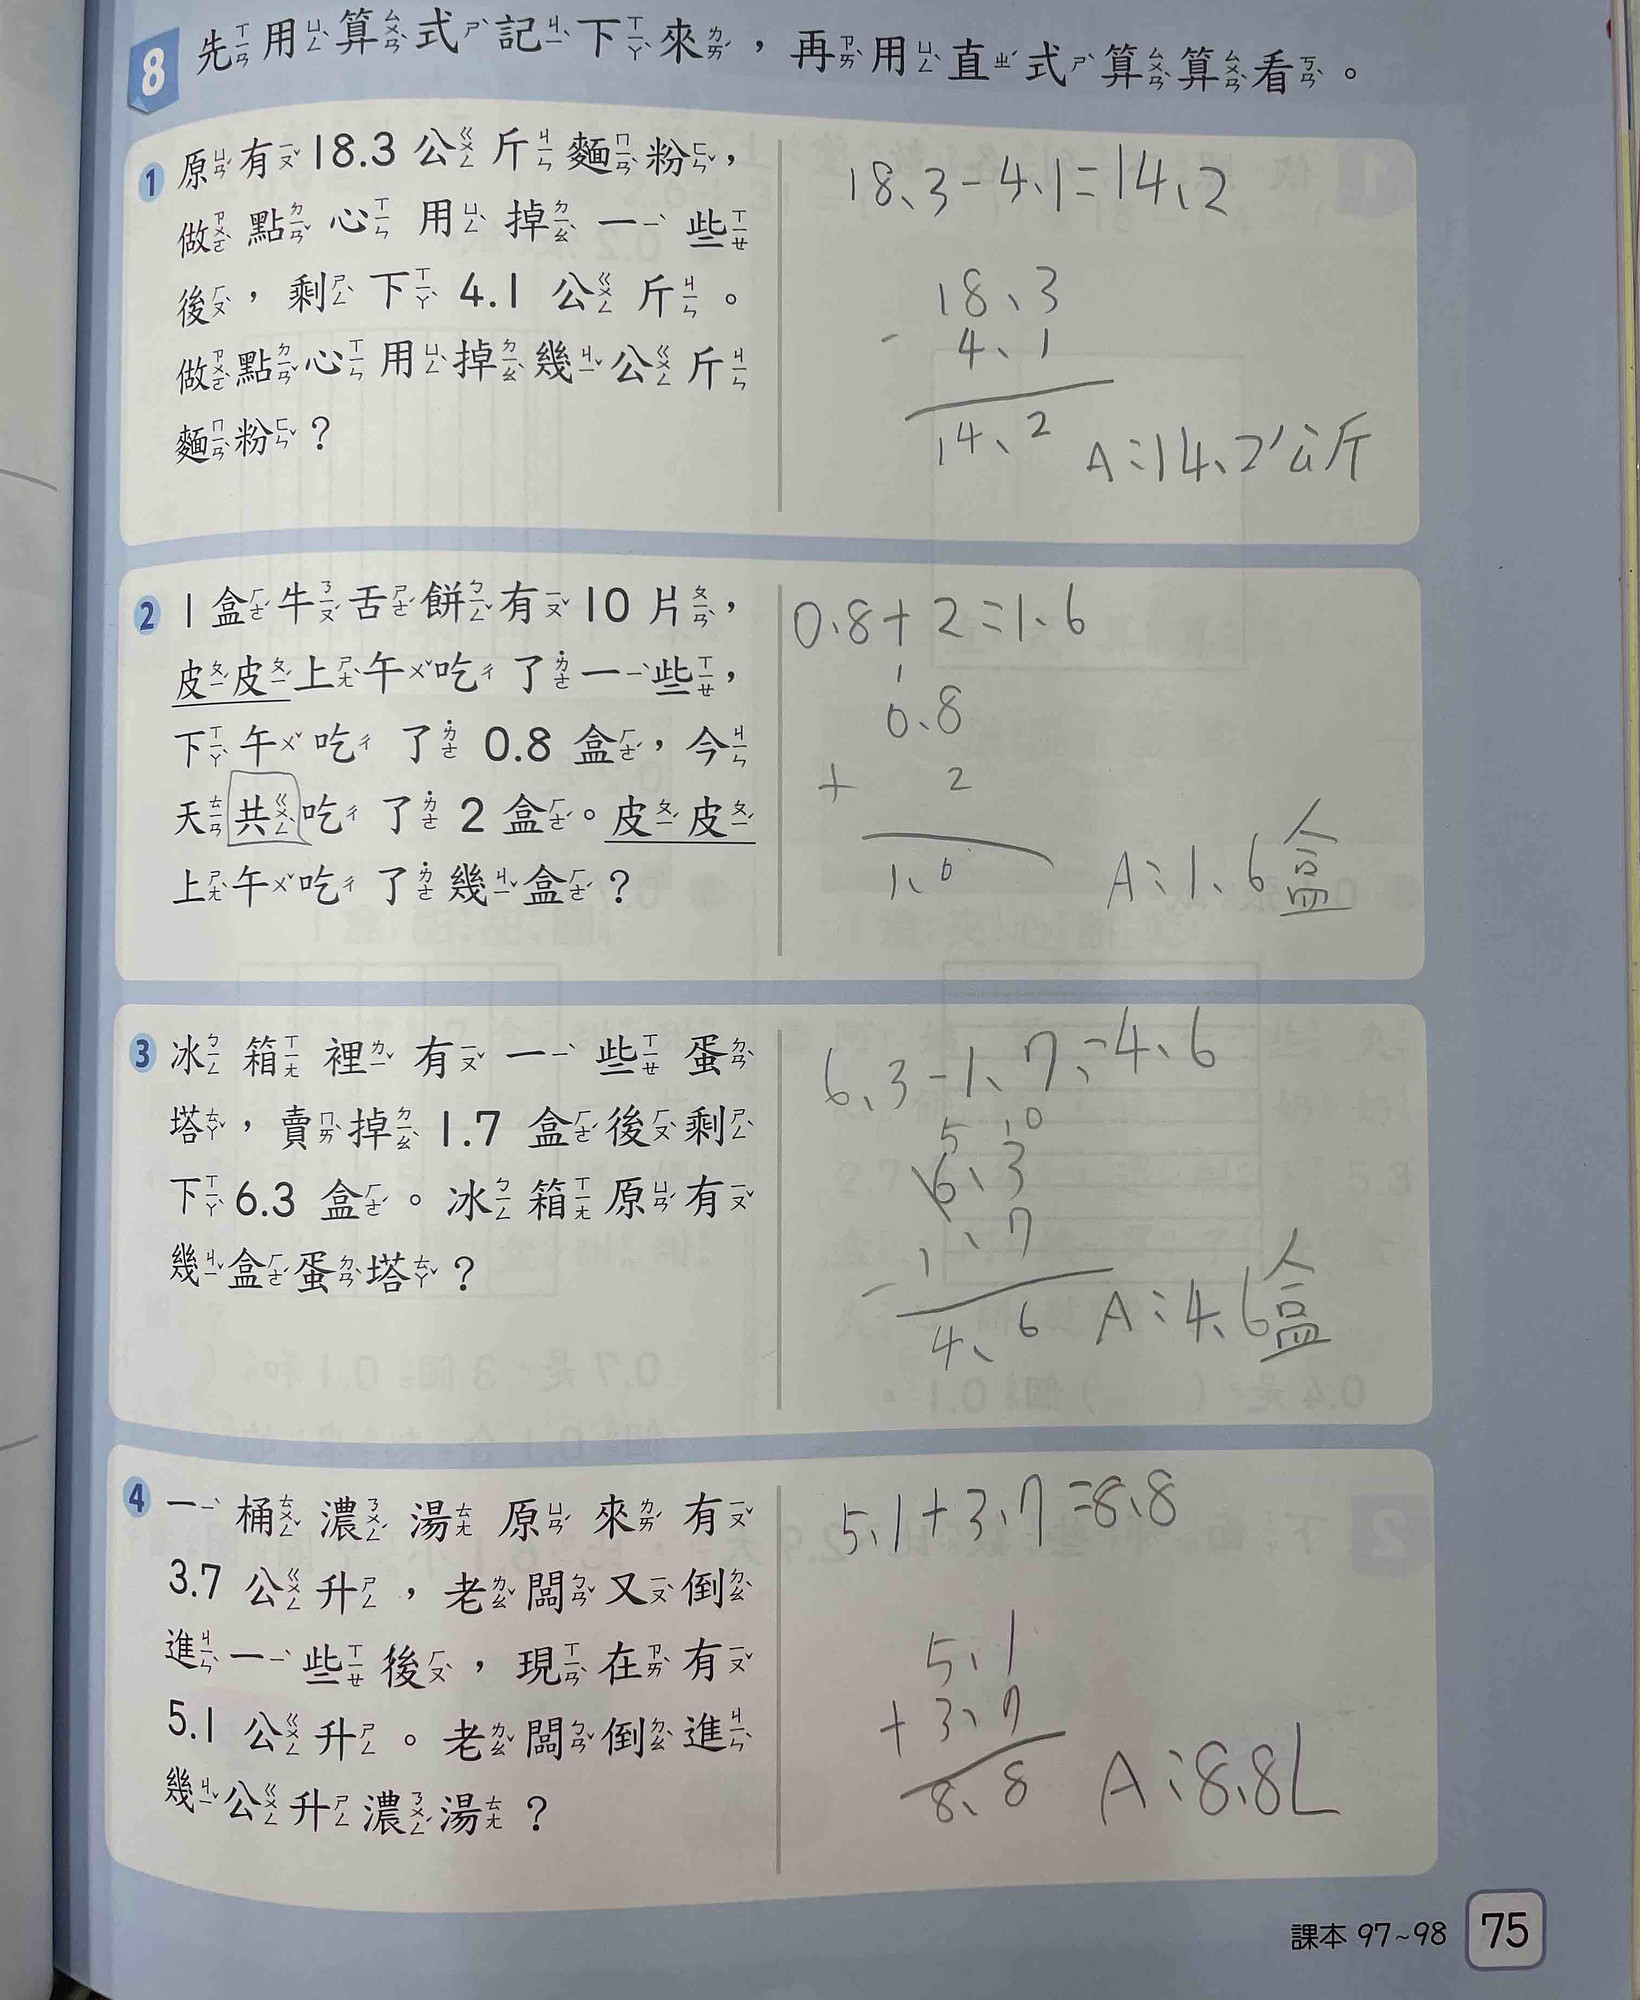 8 先用算式記下來，再用直式算算看。
1 原有18.3公斤麵粉，
做點心用掉一些
後，剩下4.1公斤。
做點心用掉幾公斤
麵粉？
18、3-4、1=14、2
18、3
- 4、1
14、2
A:14、2公斤
2 1盒牛舌餅有10片，
皮皮上午吃了一些，
下午吃了0.8盒，今
天共吃了2盒。皮皮
上午吃了幾盒？
0、8+2=1、6
1
0、8
+ 2
1、0
A:1、6盒
3 冰箱裡有一些蛋
塔，賣掉1.7盒後剩
下6.3盒。冰箱原有
幾盒蛋塔？
6、3-1、7=4、6
5 10
6、3
- 1、7
4、6
A:4、6盒
4 一桶濃湯原來有
3.7公升，老闆又倒
進一些後，現在有
5.1公升。老闆倒進
幾公升濃湯？
5、1+3、7=8、8
5、1
+3、7
8、8
A:8、8L
課本 97~98 75